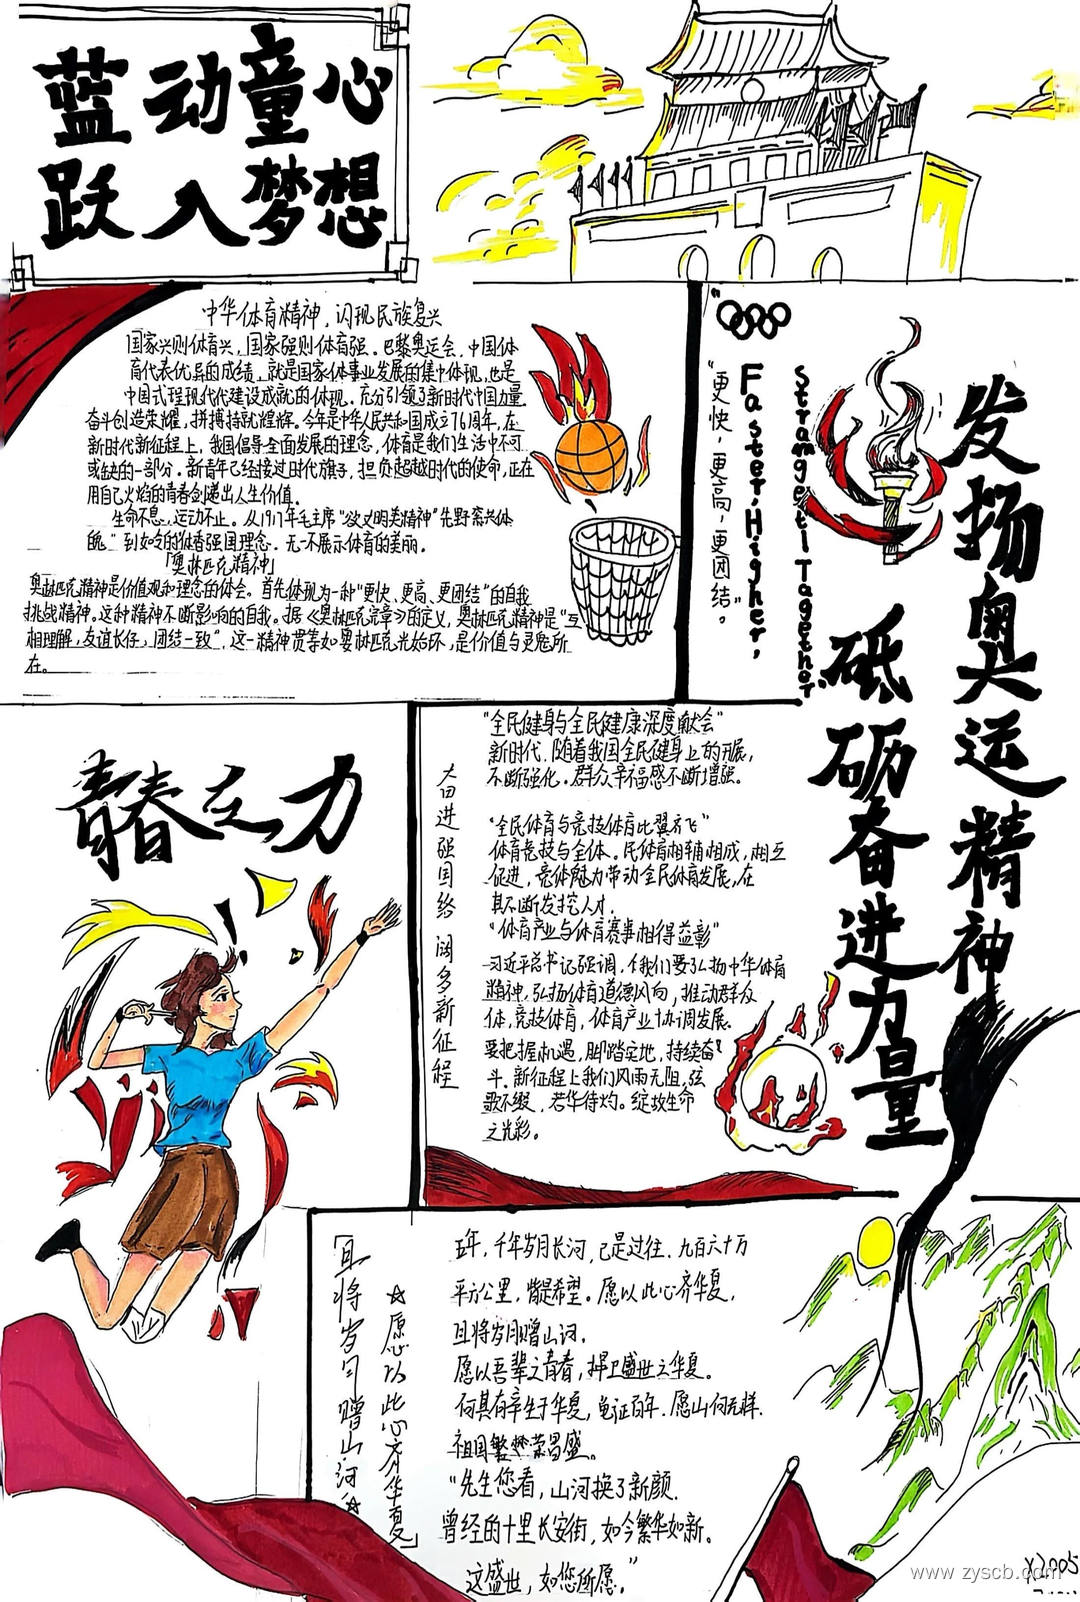 蓝动童心
跃入梦想
中华体育精神，闪现民族复兴
国家兴则体育兴，国家强则体育强。巴黎奥运会，中国体
育代表优异的成绩，就是国家体事业发展的集中体现，也是
中国式程现代代建设成就的体现。充分引领了新时代中国力量
奋斗创造荣耀，拼搏持航辉辉。今年是中华人民共和国成立76周年，在
新时代新征程上，我国倡导全面发展的理念，体育是我们生活中不可
或缺的一部分。新青年已经接过时代旗子，担负起越时代的使命，正在
用自己火焰的青春创递出人生价值。
生命不息，运动不止。从1917年毛主席“欲文明类精神”先野蛮兴体
到如今的体香强国理念，无一不展示体育的美丽。
「奥林匹克精神」
奥林匹克精神是价值观和理念的体会。首先体现为一种“更快、更高、更团结”的自我
挑战精神。这种精神不断影响的自我。据《奥林匹克宪章》的定义，奥林匹克精神是“互
相理解，友谊长仔，团结一致”，这一精神贯等如奥林匹克光始环，是价值与灵魂所
在。
"更快，更高，更团结"。
"Faster,Higher,
Strangetl Tagethor"
发扬奥运精神
砥砺奋进力量
青春之力
奋进强国络 阔多新征程
“全民健身与全民健康深度献会”
新时代，随着我国全民健身上的开展，
不断强化，群众幸福感不断增强。
“全民体育与竞技体育比翼齐飞”
体育竞技与全体。民体育相辅相成，相互
促进，竞体魅力带动全民体育发展，在
其不断发挖人才.
“体育产业与体育赛事相得益彰”
习近平总书记强调，我们要弘扬中华体育
精神，弘扬体育道德风向，推动群众
体，竞技体育，体育产业协调发展.
要把握机遇，脚踏实地，持续奋
斗.新征程上我们风雨无阻，弦
歌不缀，若华待灼。绽放生命
之光彩。
「且将岁月赠山河☆
☆愿心以此心齐华夏」
五年，千年岁月长河，已是过往，九百六十万
平方公里，皆是希望。愿以此心齐华夏，
且将岁月赠山河，
愿以吾辈之青春，捍卫盛世之华夏。
何其有幸生于华夏，见证百年.愿山何无恙.
祖国繁荣昌盛。
“先生您看，山河换了新颜.
曾经的十里长安街，如今繁华如新。
这盛世，如您所愿。”
www.zyscb.com